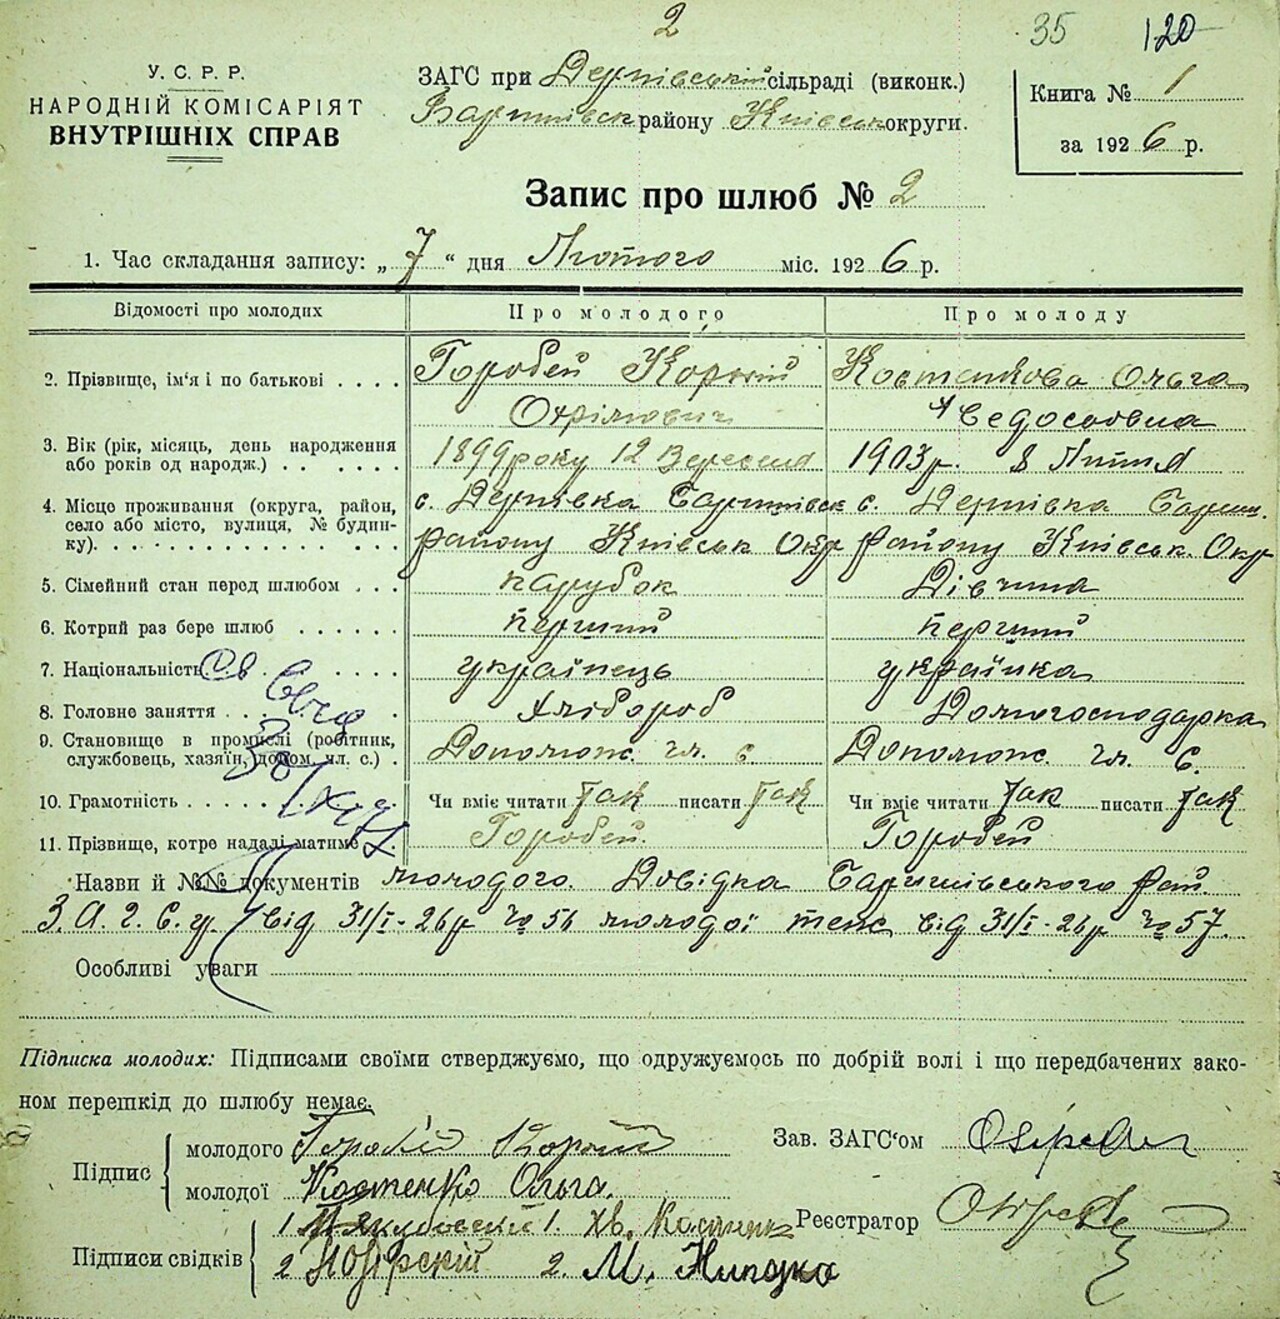 2
35 120
У. С. Р. Р.
НАРОДНІЙ КОМІСАРІЯТ
ВНУТРІШНІХ СПРАВ
ЗАГС при Дернівській сільраді (виконк.)
Баришівськ району Київськ округи.
Книга № 1
за 1926 р.
Запис про шлюб № 2
1. Час складання запису: „ 7 “ дня Лютого міс. 1926 р.
Відомості про молодих Про молодого Про молоду
2. Прізвище, ім'я і по батькові . . . . Горобей Корній Костенкова Ольга
Охрімович Ѳедосовна
3. Вік (рік, місяць, день народження
або років од народж.) . . . . . . 1899 року 12 Вересня 1903 р. 8 Липня
4. Місце проживання (округа, район, с. Дернівка Баришівськ с. Дернівка Бариш.
село або місто, вулиця, № будин-
ку). . . . району Київськ Окр району Київськ. Окр
5. Сімейний стан перед шлюбом . . . парубок Дівчина
6. Котрий раз бере шлюб . . . . . . перший перший
7. Національність українець українка
8. Головне заняття . . . Хлібороб Домогосподарка
9. Становище в промислі (робітник,
службовець, хазяїн, допом. чл. с.) . Допомож. чл. с. Допомож. чл. С.
10. Грамотність . . . . . Чи вміє читати так писати так Чи вміє читати так писати так
11. Прізвище, котре надалі матиме Горобей. Горобей
Назви й №№ документів молодого. Довідка Баришівського Рай.
З. А. Г. С. у. від 31/I - 26 р № 56 молодої теж від 31/I - 26 р № 57.
Особливі уваги
Підписка молодих: Підписами своїми стверджуємо, що одружуємось по добрій волі і що передбачених зако-
ном перешкід до шлюбу немає.
Підпис
молодого Горобій Корній
молодої Костенко Ольга.
Зав. ЗАГС'ом
Реєстратор
Підписи свідків
1 1. Хв. Костенк
2 2. М.